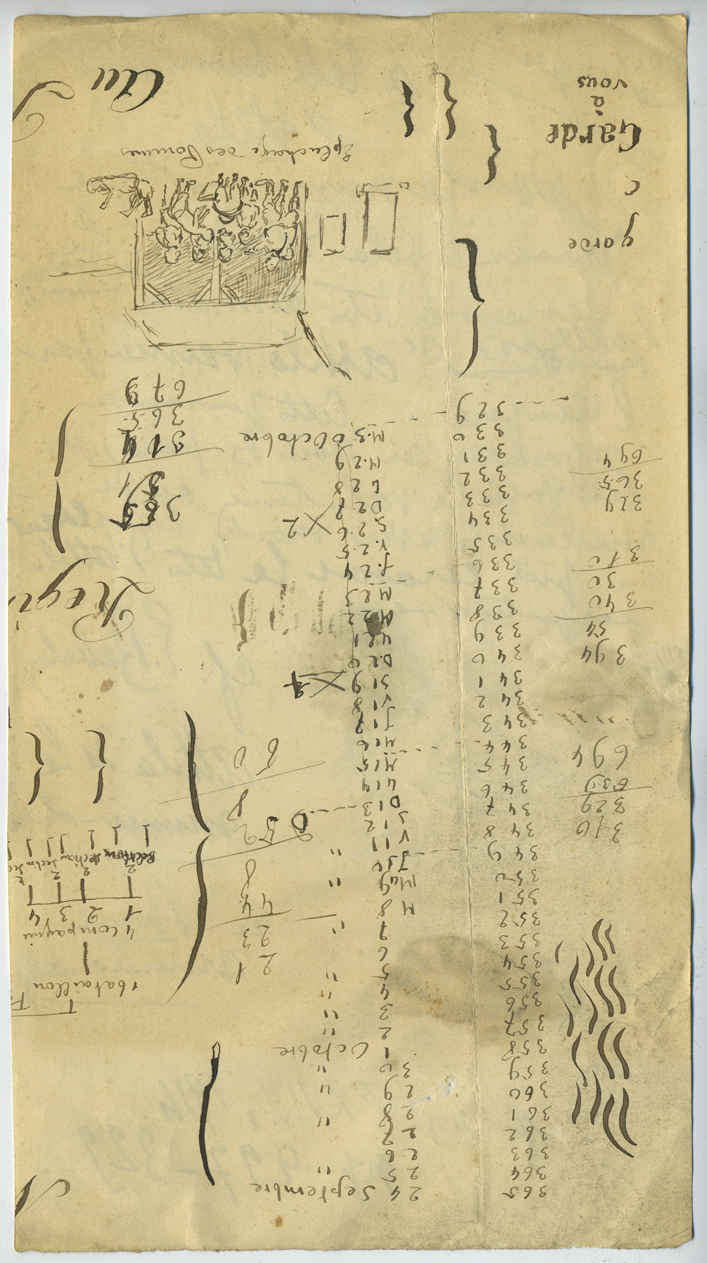 365
364
363
362
361
360
359
358
357
356
355
354
353
352
351
350
349
348
347
346
345
344
343
342
341
340
339
338
337
336
335
334
333
332
331
330
329
24 Septembre
25 "
26
27 "
28
29 "
30 "
1 Octobre
2 "
3 "
4 "
5 "
6
7 "
8 M
9
10 J "
11 V "
12 S
13 D
14
15 M
16 M
17 J
18 V
19 S
20 D
21
22 M
23 M
24 J
25 V
26 S
27 D
28
29 M
30 M Octobre
310
329
639
694
394
54
340
30
310
329
365
694
garde
C
Garde
à
vous
21
23
44
8
52
8
60
1 bataillon
4 compagni
1 2 3 4
2 2 2
Section Section Section
×2
365
314
365
679
Epluchage des Pommes
Au